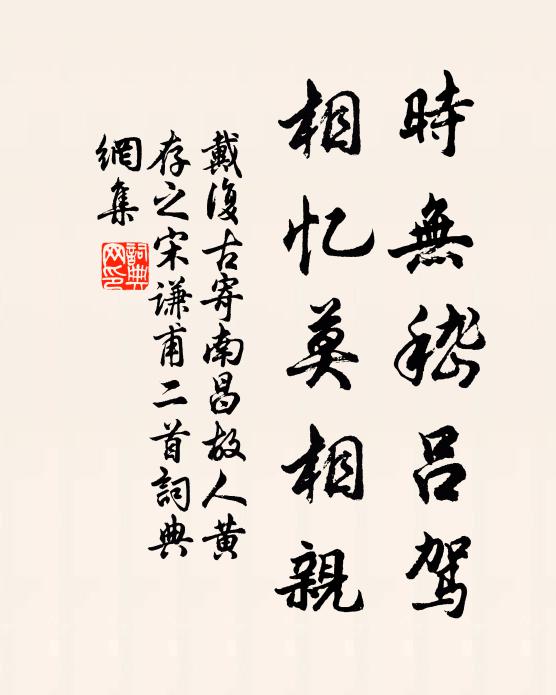 時無嵇呂駕
相忆莫相親
戴復古寄南昌故人黄
存之宋谦甫二首詞典
網集
詞典網印